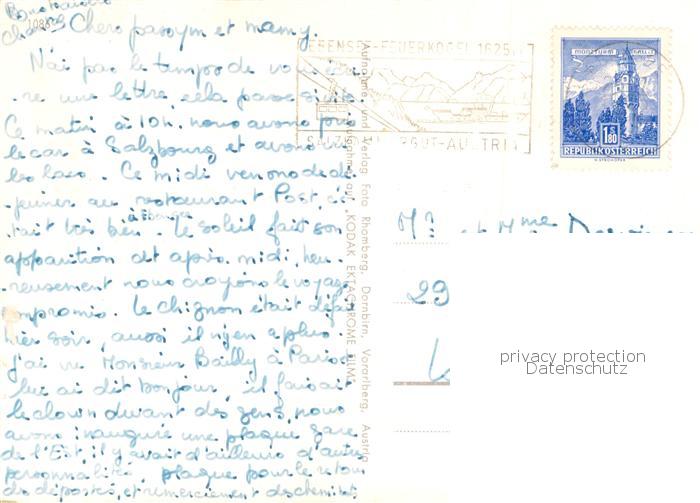 Chers papym et mamy.
N'ai pas le temps de vous écri
re une lettre, cela passe si vite
Ce matin à 10h. nous avons pris
le car à Salzbourg et avons vu
les lacs. Ce midi venons de dé
jeuner au restaurant Post, c'é
tait très bien. Le soleil fait son
à Ebensee
apparition cet après-midi, heu
reusement nous croyions le voyage
compromis. Le chignon était défait
hier soir, aussi il n'y en a plus.
J'ai vu Monsieur Bailly à Paris
lui ai dit bonjour, il faisait
le clown devant des gens, nous
avons inauguré une plaque gare
de l'Est, il y avait d'ailleurs d'autres
personnalités, plaque pour le retour
des déportés, et remerciement des cheminots
EBENSEE-FEUERKOGEL 1625m
SALZKAMMERGUT-AUSTRIA
MÜNZTURM HALL i.T.
1.80
REPUBLIK ÖSTERREICH
Aufnahme und Verlag Foto Rhomberg, Dornbirn, Vorarlberg, Austria
"KODAK EKTACHROME FILM"
Mr et Mme
29
privacy protection
Datenschutz